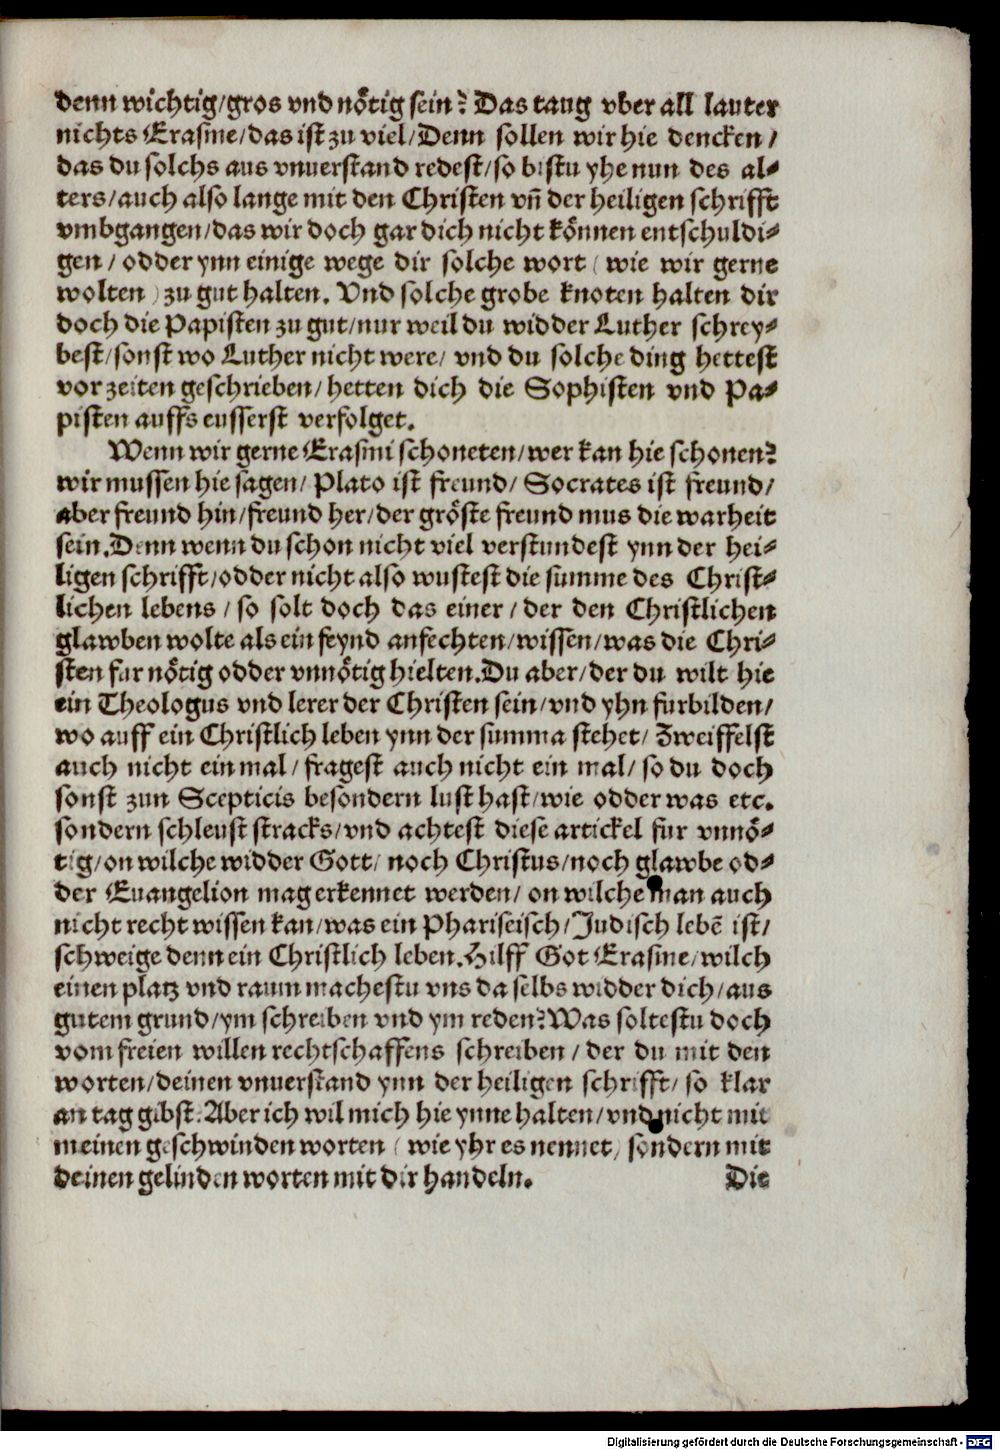 denn wichtig/gros vnd nötig sein? Das taug vber all lauter
nichts Erasme/das ist zu viel/Denn sollen wir hie dencken/
das du solchs aus vnuerstand redest/so bistu yhe nun des al-
ters/auch also lange mit den Christen vñ der heiligen schrifft
vmbgangen/das wir doch gar dich nicht können entschuldi-
gen/odder ynn einige wege dir solche wort (wie wir gerne
wolten) zu gut halten. Vnd solche grobe knoten halten dir
doch die Papisten zu gut/nur weil du widder Luther schrey-
best/sonst wo Luther nicht were/ vnd du solche ding hettest
vor zeiten geschrieben/hetten dich die Sophisten vnd Pa-
pisten auffs eusserst verfolget.
Wenn wir gerne Erasmi schoneten/wer kan hie schonen?
wir mussen hie sagen/ Plato ist freund/ Socrates ist freund/
aber freund hin/freund her/der gröste freund mus die warheit
sein. Denn wenn du schon nicht viel verstundest ynn der hei-
ligen schrifft/odder nicht also wustest die summe des Christ-
lichen lebens/so solt doch das einer/der den Christlichen
glawben wolte als ein feynd anfechten/wissen/was die Chri-
sten fur nötig odder vnnötig hielten. Du aber/der du wilt hie
ein Theologus vnd lerer der Christen sein/vnd yhn furbilden/
wo auff ein Christlich leben ynn der summa stehet/ Zweiffelst
auch nicht ein mal/fragest auch nicht ein mal/so du doch
sonst zun Scepticis besondern lust hast/wie odder was etc.
sondern schleust stracks/vnd achtest diese artickel fur vnnö-
tig/on wilche widder Gott/ noch Christus/noch glawbe od-
der Euangelion mag erkennet werden/on wilche man auch
nicht recht wissen kan/was ein Phariseisch/Judisch lebē ist/
schweige denn ein Christlich leben. Hilff Got Erasme/wilch
einen platz vnd raum machestu vns da selbs widder dich/aus
gutem grund/ym schreiben vnd ym reden? Was soltestu doch
vom freien willen rechtschaffens schreiben/der du mit den
worten/deinen vnuerstand ynn der heiligen schrifft/so klar
an tag gibst. Aber ich wil mich hie ynne halten/vnd nicht mit
meinen geschwinden worten (wie yhr es nennet) sondern mit
deinen gelinden worten mit dir handeln. Die
Digitalisierung gefördert durch die Deutsche Forschungsgemeinschaft - DFG